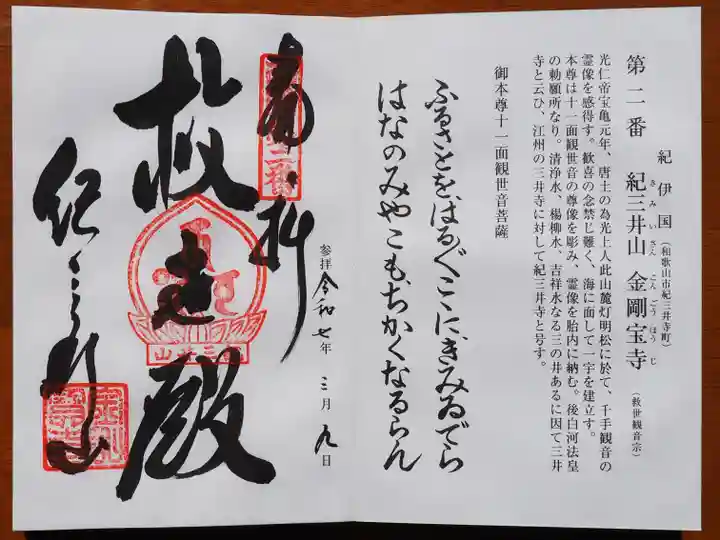 第二番
紀伊国(和歌山市紀三井寺町)
紀三井山 金剛宝寺(救世観音宗)
きみいさん こんごうほうじ
光仁帝宝亀元年、唐土の為光上人此山麓灯明松に於て、千手観音の
霊像を感得す。歓喜の念禁じ難く、海に面して一宇を建立す。
本尊は十一面観世音の尊像を彫み、霊像を胎内に納む。後白河法皇
の勅願所なり。清浄水、楊柳水、吉祥水なる三の井あるに因て三井
寺と云ひ、江州の三井寺に対して紀三井寺と号す。
御本尊十一面観世音菩薩
ふるさとをはる〲こゝにきみゐでら
はなのみやこもちかくなるらん
奉拝
救世殿
紀三井山
参拝令和七年三月九日